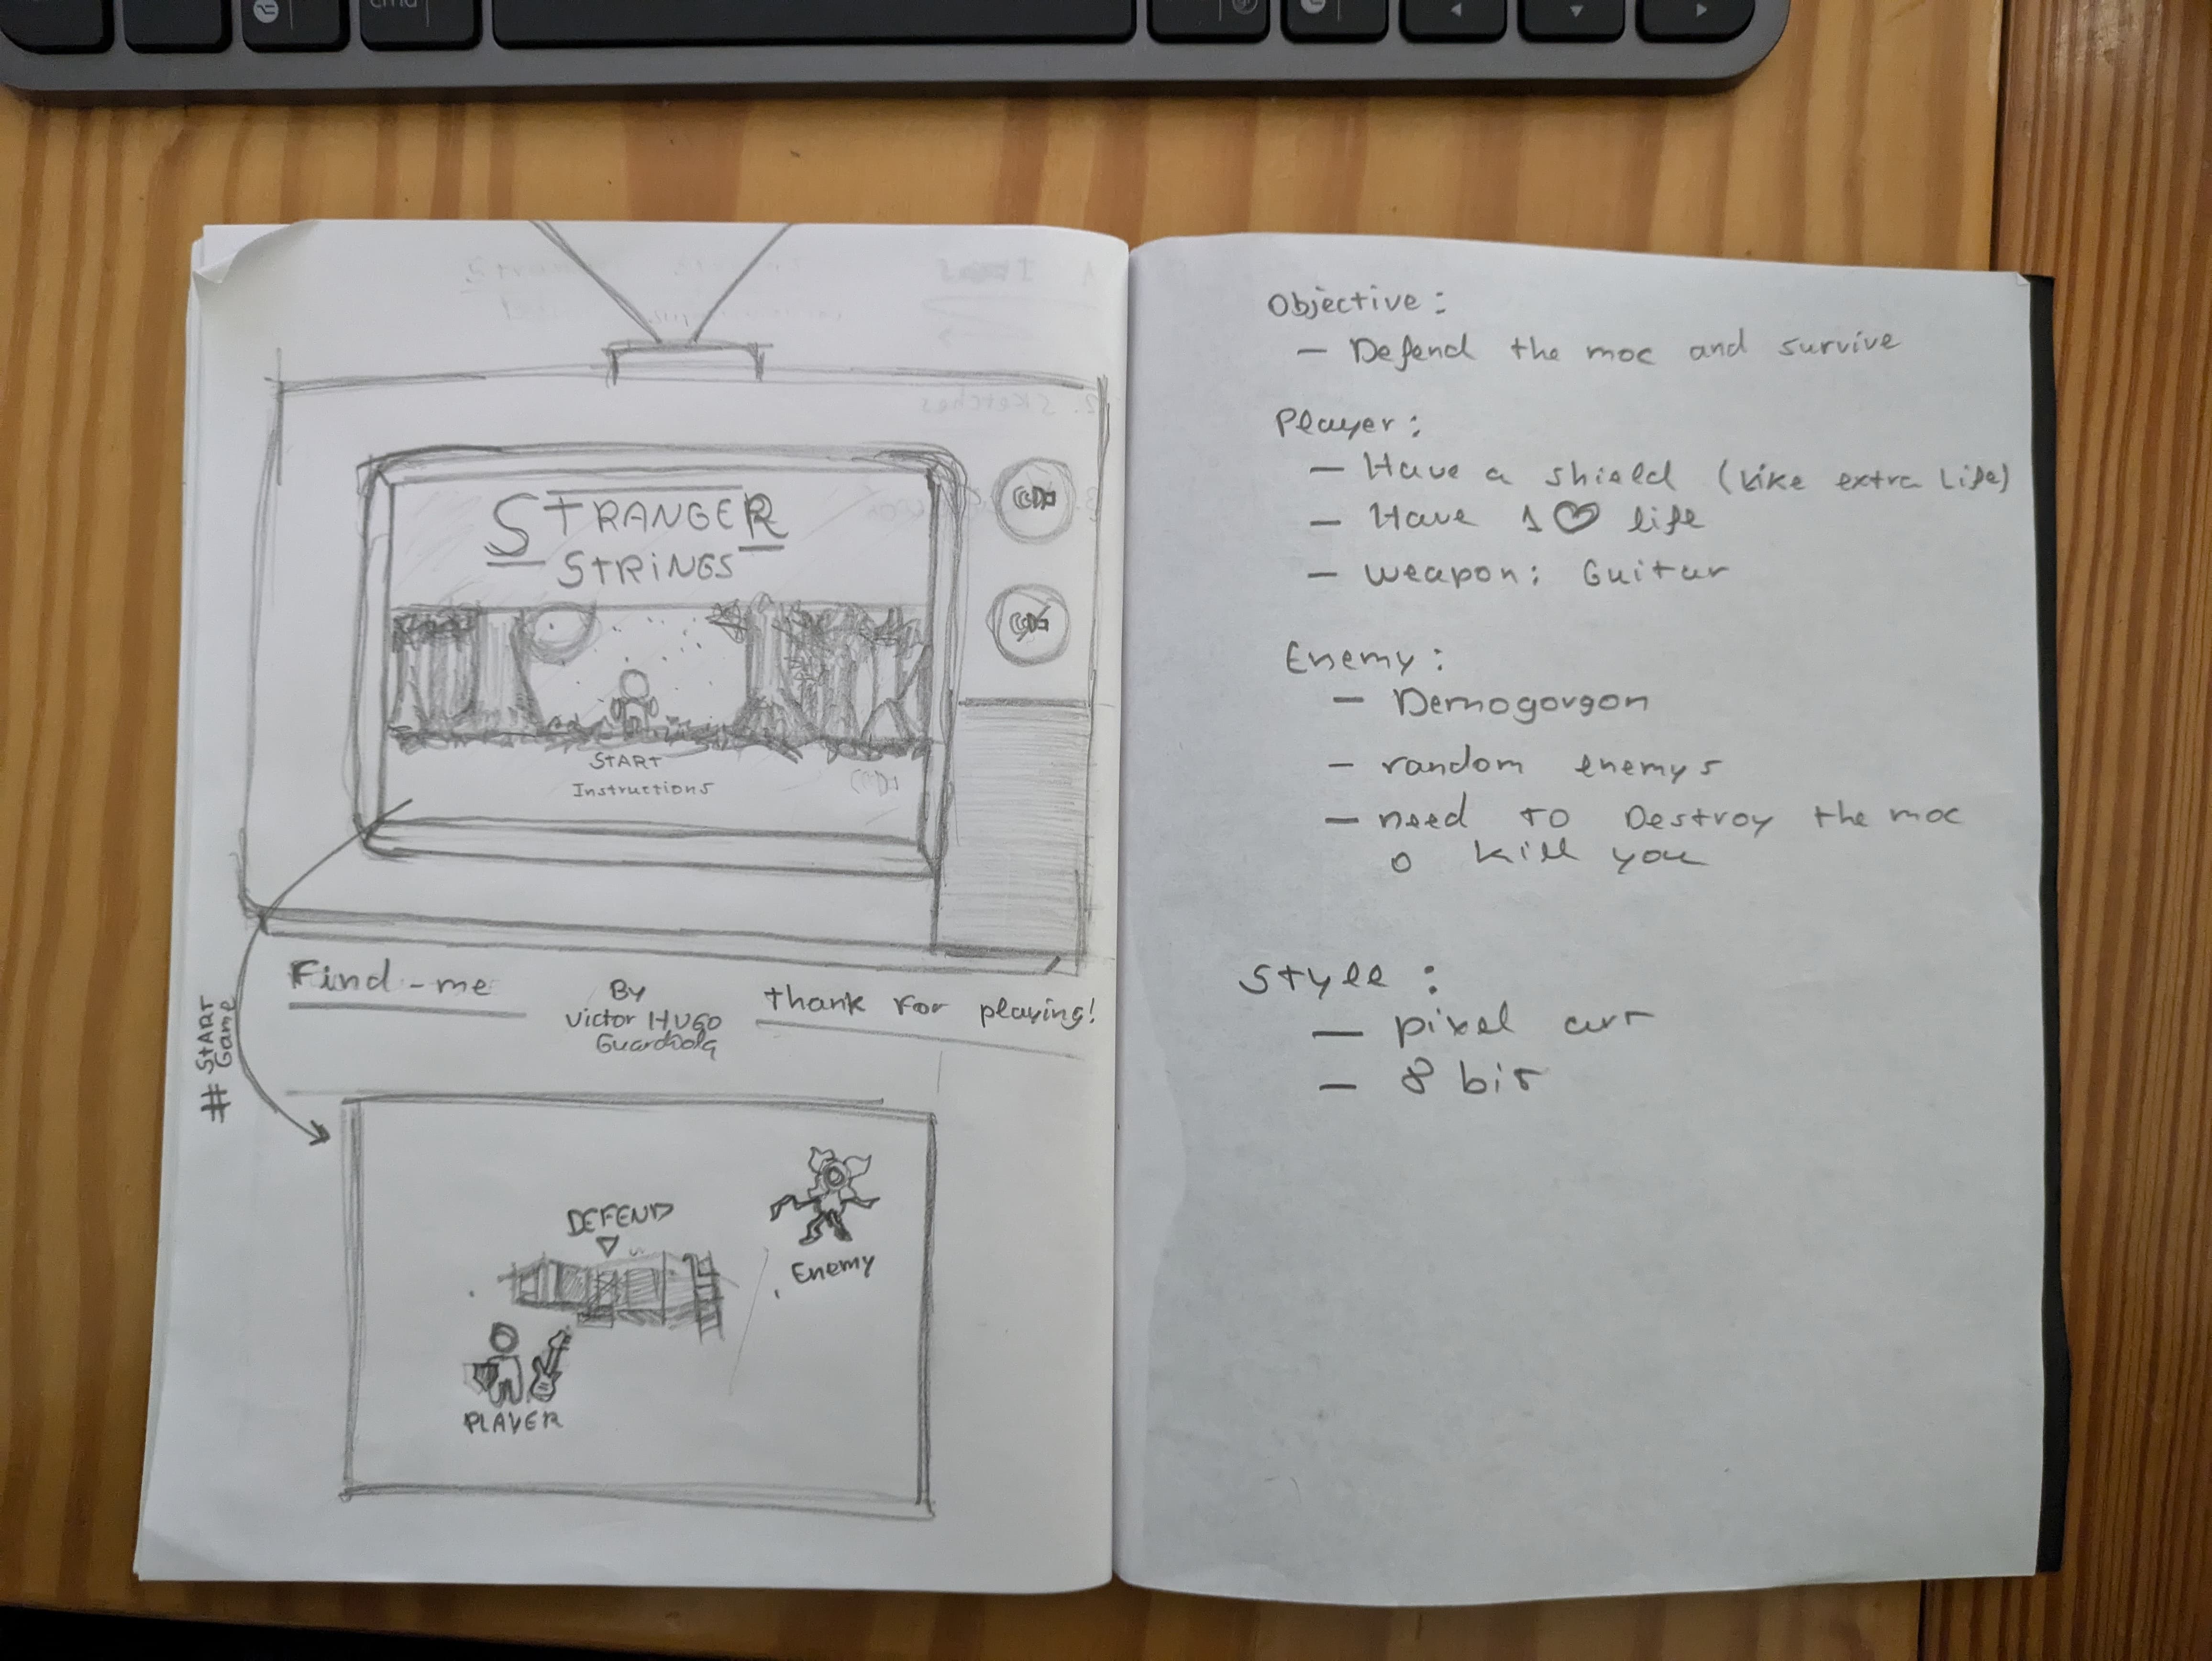 cmd
STRANGER
STRINGS
START
Instructions
Find-me
By
Victor HUGO
Guardiola
thank For playing!
# START
Game
DEFEND
Enemy
PLAYER
Objective:
- Defend the moc and survive
Player:
- Have a shield (Like extra Life)
- Have 1 ♡ life
- weapon: Guitar
Enemy:
- Demogorgon
- random enemys
- need to Destroy the moc
o kill you
Style:
- pixel art
- 8 bit